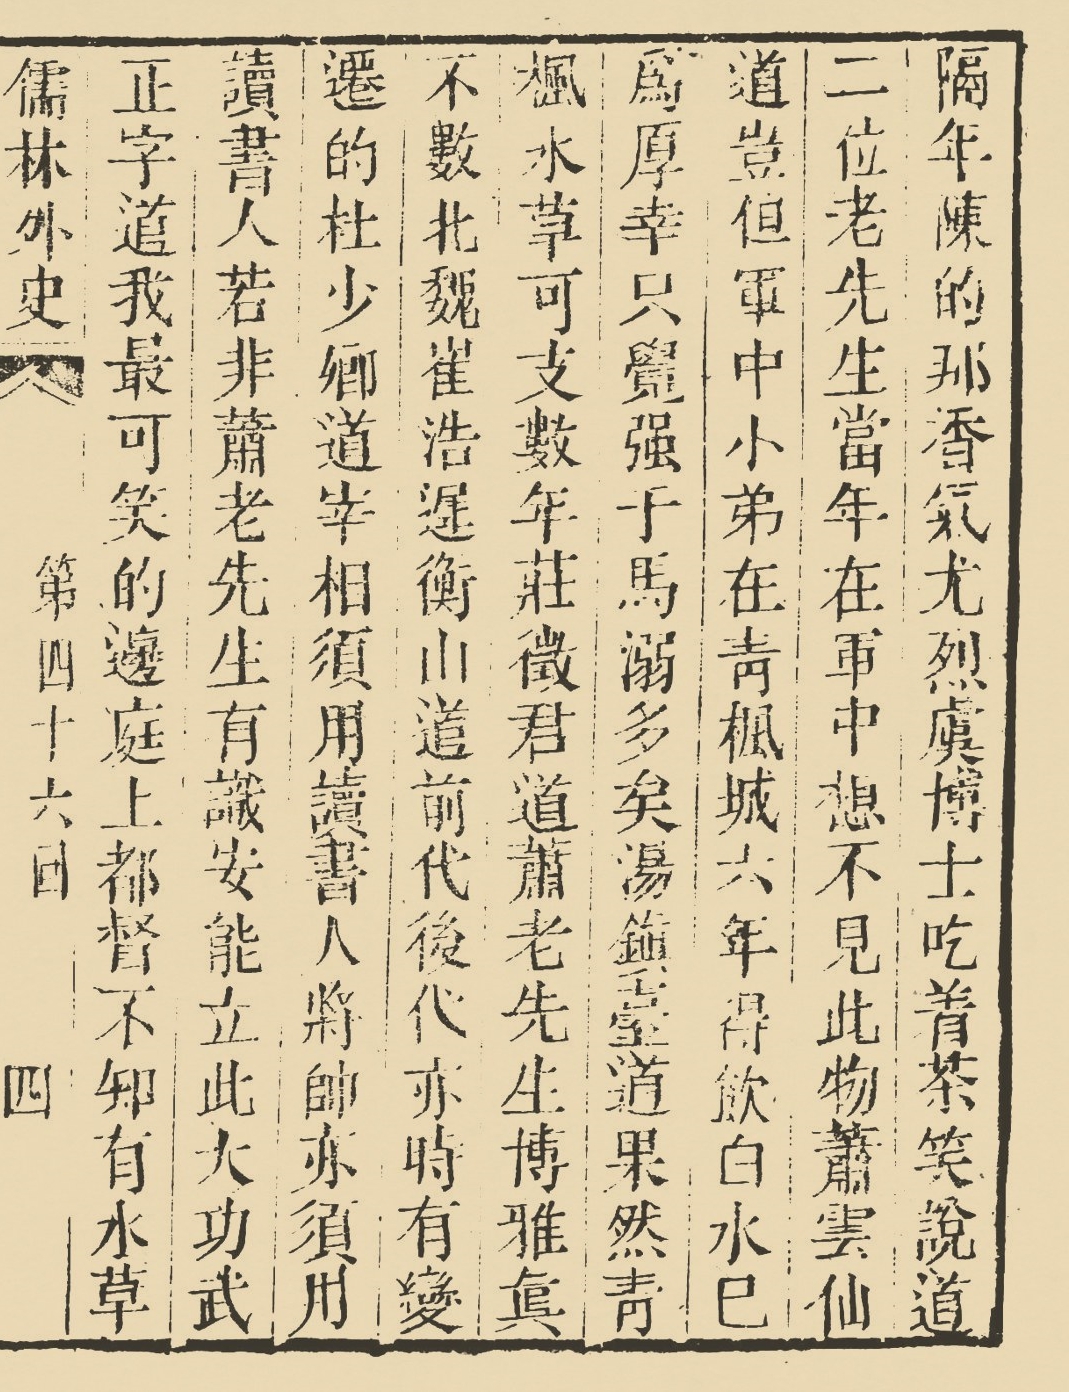 隔年陳的那香氣尤烈虞博士吃着茶笑說道
二位老先生當年在軍中想不見此物蕭雲仙
道豈但軍中小弟在青楓城六年得飲白水已
爲厚幸只覺强于馬溺多矣湯鎭臺道果然青
楓水草可支數年莊徵君道蕭老先生博雅眞
不數北魏崔浩遲衡山道前代後代亦時有變
遷的杜少卿道宰相須用讀書人將帥亦須用
讀書人若非蕭老先生有識安能立此大功武
正字道我最可笑的邊庭上都督不知有水草
儒林外史 第四十六回 四